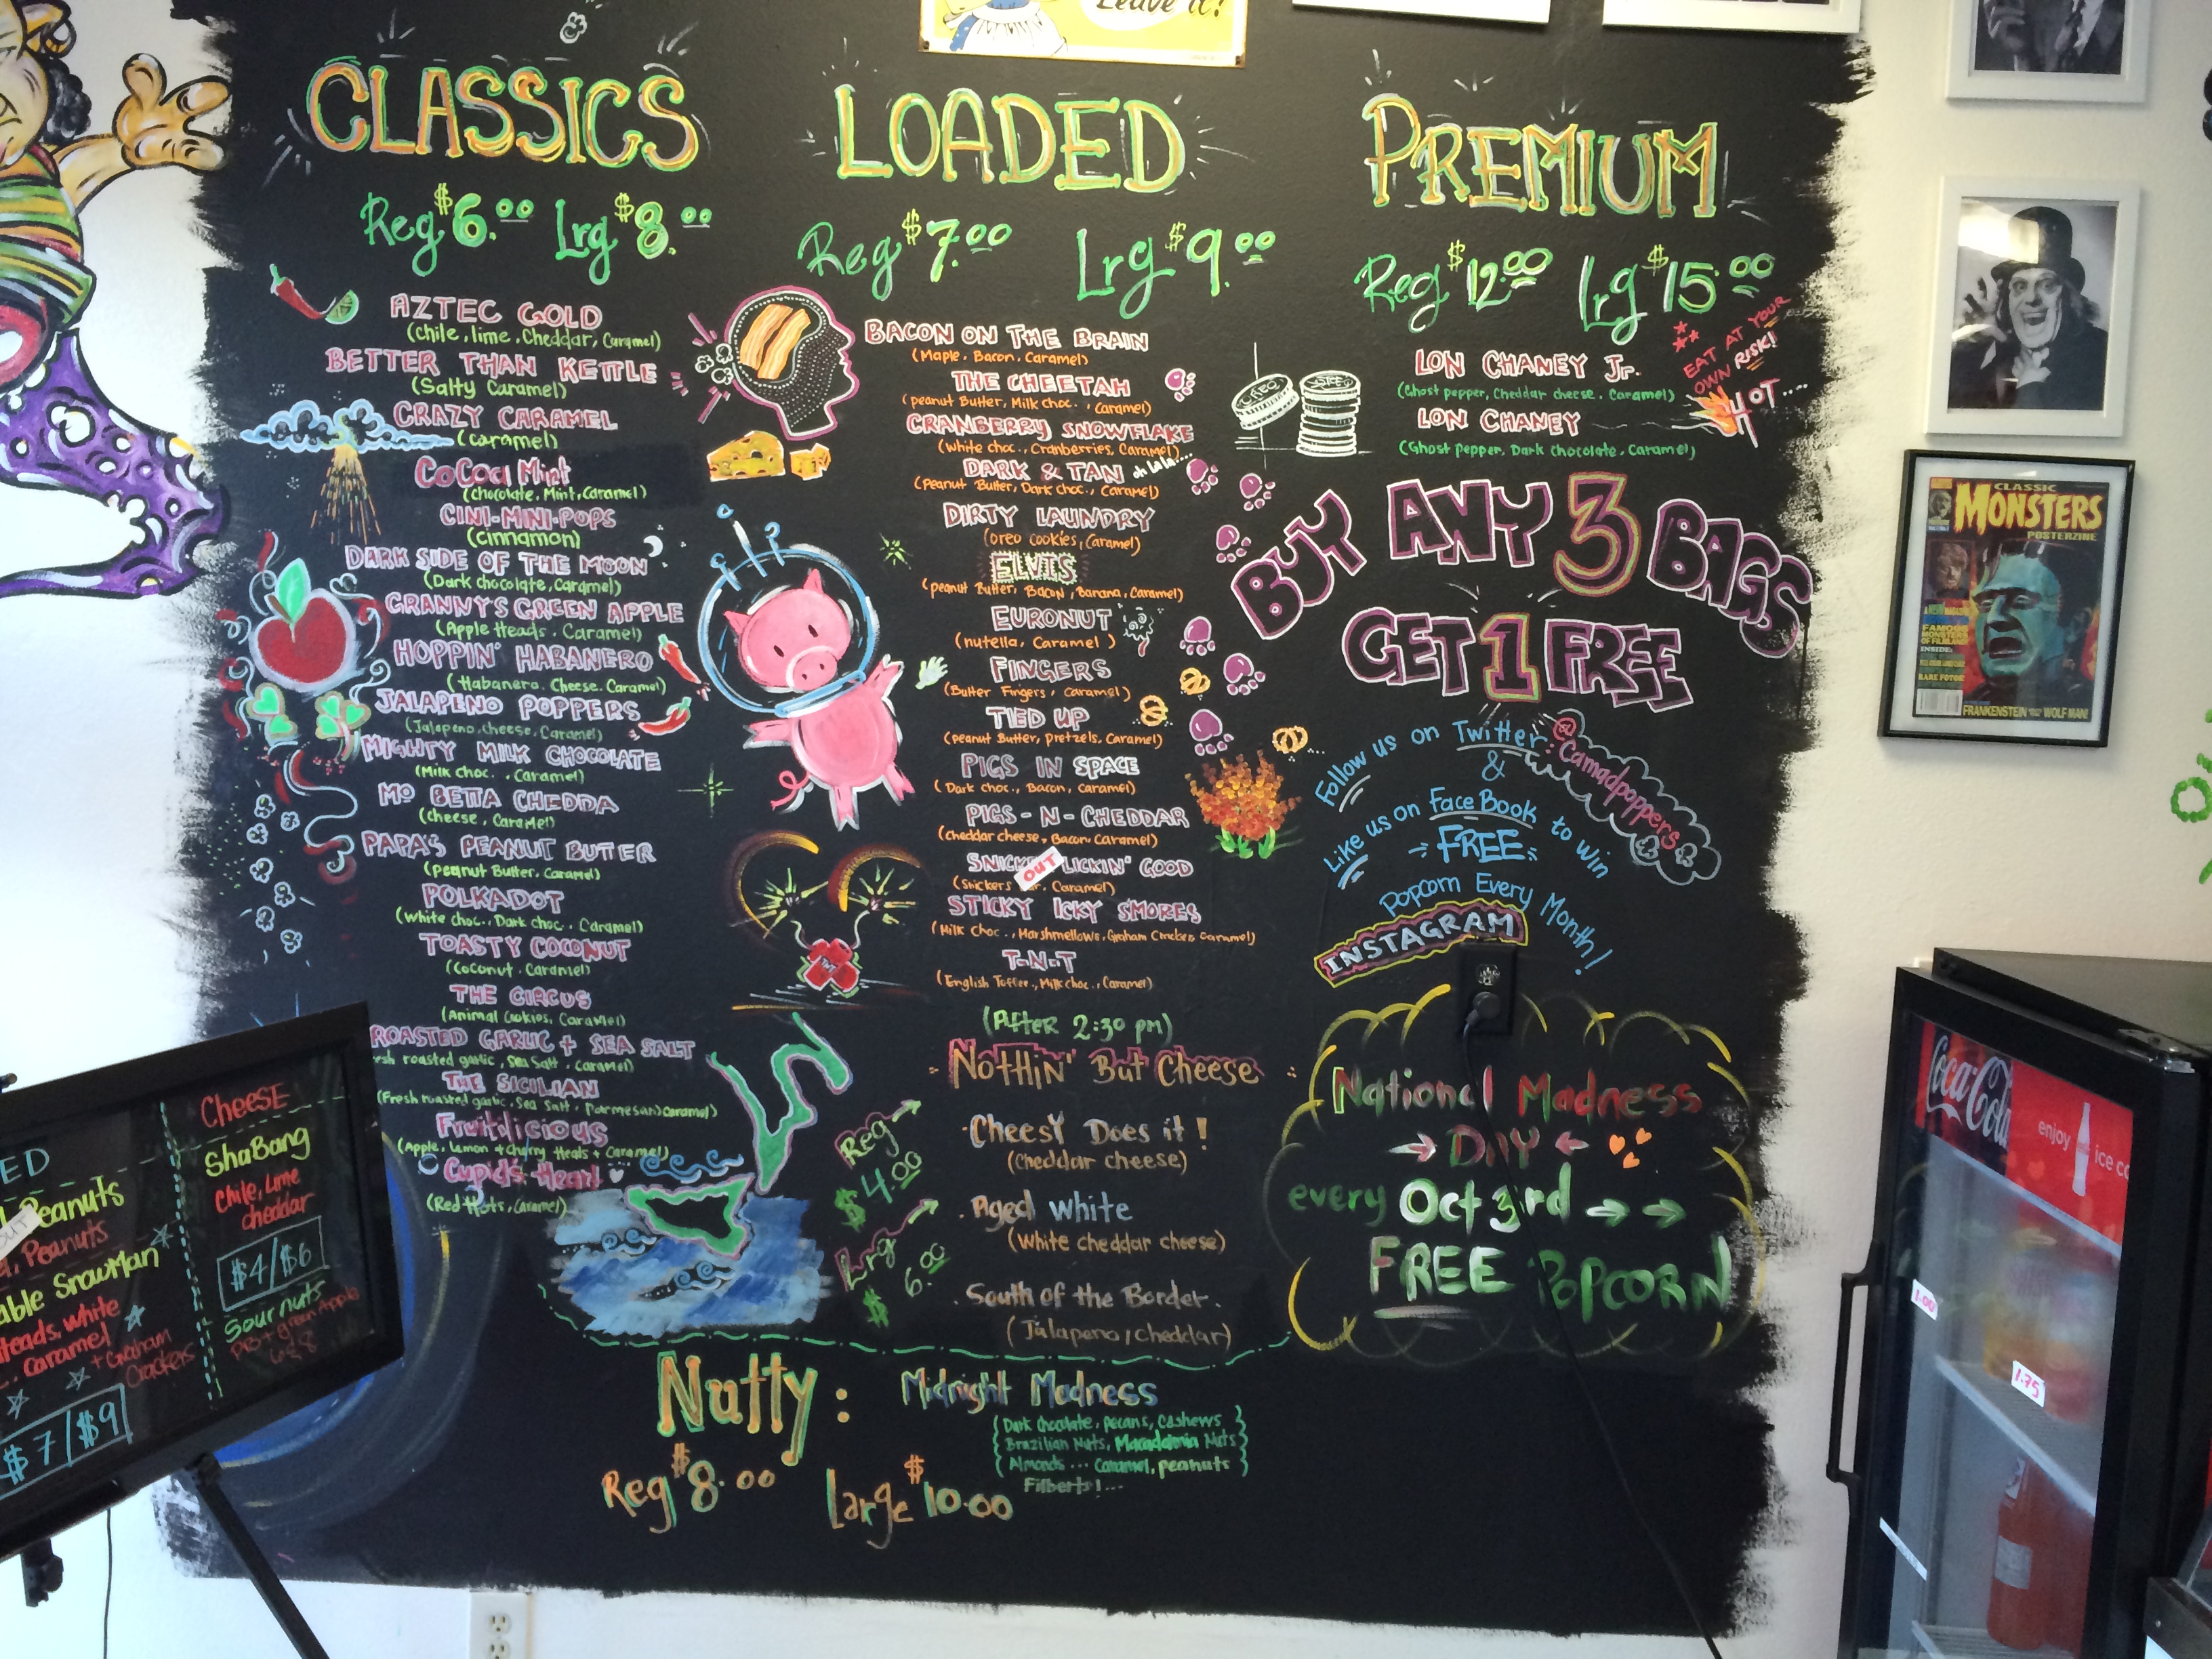 Leave it!
CLASSICS
Reg $6.00 Lrg $8.00
AZTEC GOLD
(Chile, lime, Cheddar, Caramel)
BETTER THAN KETTLE
(Salty Caramel)
CRAZY CARAMEL
(Caramel)
CoCoa Mint
(Chocolate, Mint, Caramel)
CINI-MINI-POPS
(cinnamon)
DARK SIDE OF THE MOON
(Dark chocolate, Caramel)
GRANNY'S GREEN APPLE
(Apple Heads, Caramel)
HOPPIN' HABANERO
(Habanero, Cheese, Caramel)
JALAPENO POPPERS
(Jalapeno, cheese, Caramel)
MIGHTY MILK CHOCOLATE
(Milk choc., Caramel)
MO BETTA CHEDDA
(cheese, Caramel)
PAPA'S PEANUT BUTTER
(Peanut Butter, Caramel)
POLKADOT
(White choc., Dark choc., Caramel)
TOASTY COCONUT
(Coconut, Caramel)
THE CIRCUS
(Animal Cookies, Caramel)
ROASTED GARLIC + SEA SALT
esh roasted garlic, Sea Salt, Caramel)
THE SICILIAN
(Fresh roasted garlic, Sea Salt, Parmesan, Caramel)
Fruitilicious
(Apple, Lemon + Cherry Heads + Caramel)
Cupid's Heart
(Red Hots, Caramel)
LOADED
Reg $7.00 Lrg $9.00
BACON ON THE BRAIN
(Maple, Bacon, Caramel)
THE CHEETAH
(peanut Butter, Milk choc., Caramel)
CRANBERRY SNOWFLAKE
(White choc., Cranberries, Caramel)
DARK & TAN oh lala....
(Peanut Butter, Dark choc., Caramel)
DIRTY LAUNDRY
(oreo cookies, Caramel)
ELVIS
(peanut Butter, Bacon, Banana, Caramel)
EURONUT
(nutella, Caramel)
FINGERS
(Butter Fingers, Caramel)
TIED UP
(peanut Butter, pretzels, Caramel)
PIGS IN SPACE
(Dark choc., Bacon, Caramel)
PIGS-N-CHEDDAR
(Cheddar cheese, Bacon, Caramel)
SNICK OUT LICKIN' GOOD
(Snickers r, Caramel)
STICKY ICKY S'MORES
(Milk Choc., Marshmellows, Graham Cracker, Caramel)
T.N.T
(English Toffee, Milk choc., Caramel)
TNT
(After 2:30 pm)
- Nothin' But Cheese -
Reg $4.00
Lrg $6.00
·Cheesy Does it!
(Cheddar cheese)
·Aged White
(White cheddar cheese)
·South of the Border.
(Jalapeno, cheddar)
Nutty: Midnight Madness
(Dark chocolate, pecans, cashews
Brazilian Nuts, Macadamia Nuts
Almonds... Caramel, peanuts
Filberts!...
Reg $8.00 Large $10.00
PREMIUM
Reg $12.00 Lrg $15.00
EAT AT YOUR
OWN RISK!
HOT...
OREO
LON CHANEY Jr.
(Ghost pepper, Cheddar cheese, Caramel)
LON CHANEY
(Ghost pepper, Dark chocolate, Caramel)
BUY ANY 3 BAGS
GET 1 FREE
Follow us on Twitter: @Camadpoppers
&
Like us on FaceBook to win
FREE
Popcorn Every Month!
INSTAGRAM
National Madness
DAY
every Oct 3rd
FREE POPCORN
ED
Peanuts
Peanuts
able SnowMan
Heads, white
caramel + Graham
Crackers
$7/$9
CHEESE
ShaBang
Chile, Lime
cheddar
$4/$6
Sour nuts
PB + green Apple
6 & 8
CLASSIC
MONSTERS
POSTERZINE
FAMOUS
MONSTERS
OF FILMLAND
INSIDE:
RARE FOTOS
FRANKENSTEIN WOLF MAN!
Coca-Cola
enjoy
ice co
1.00
1.75